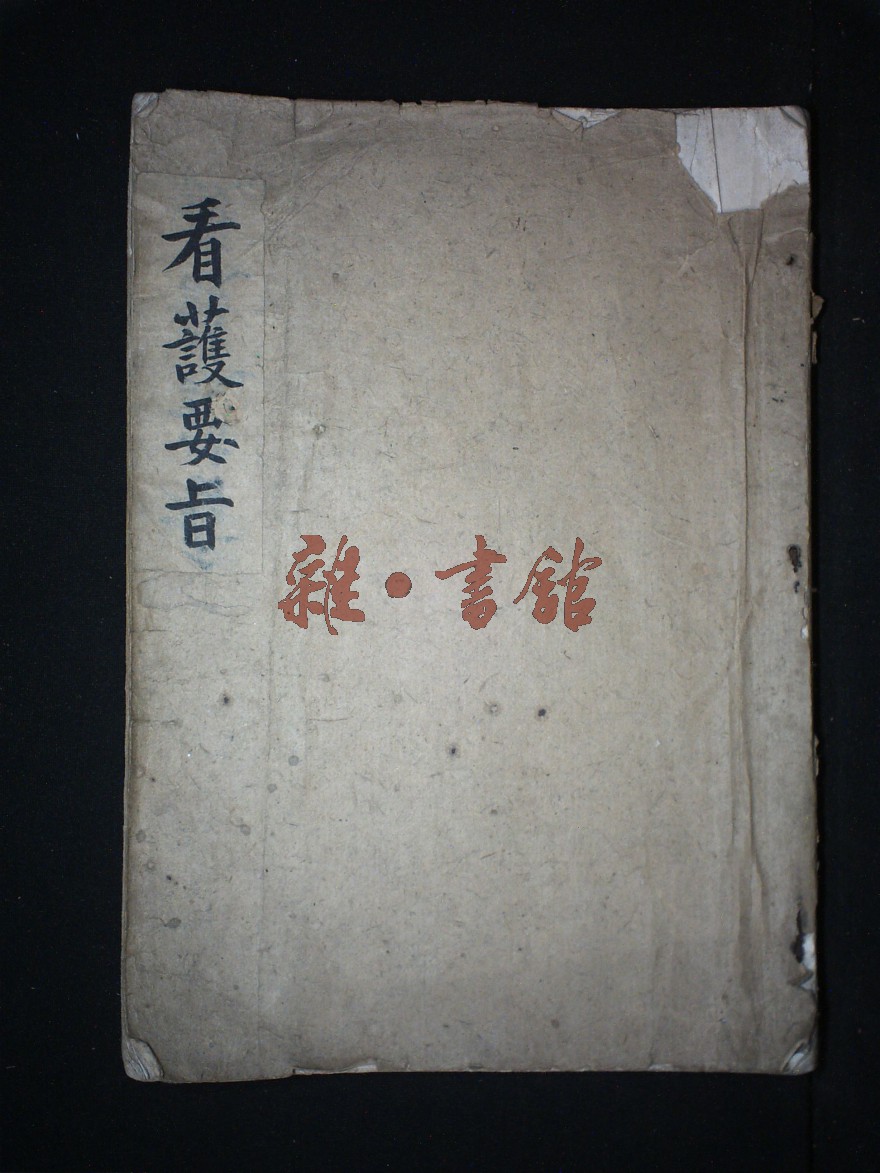 看護要旨
雜·書館